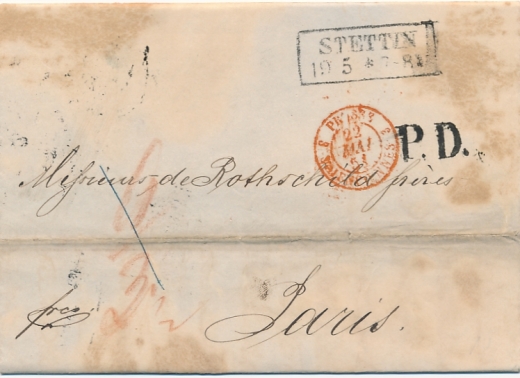 STETTIN
19 5 * 7-8
22
MAI
P.D.
Messieurs de Rothschild frères
frco.
Paris.